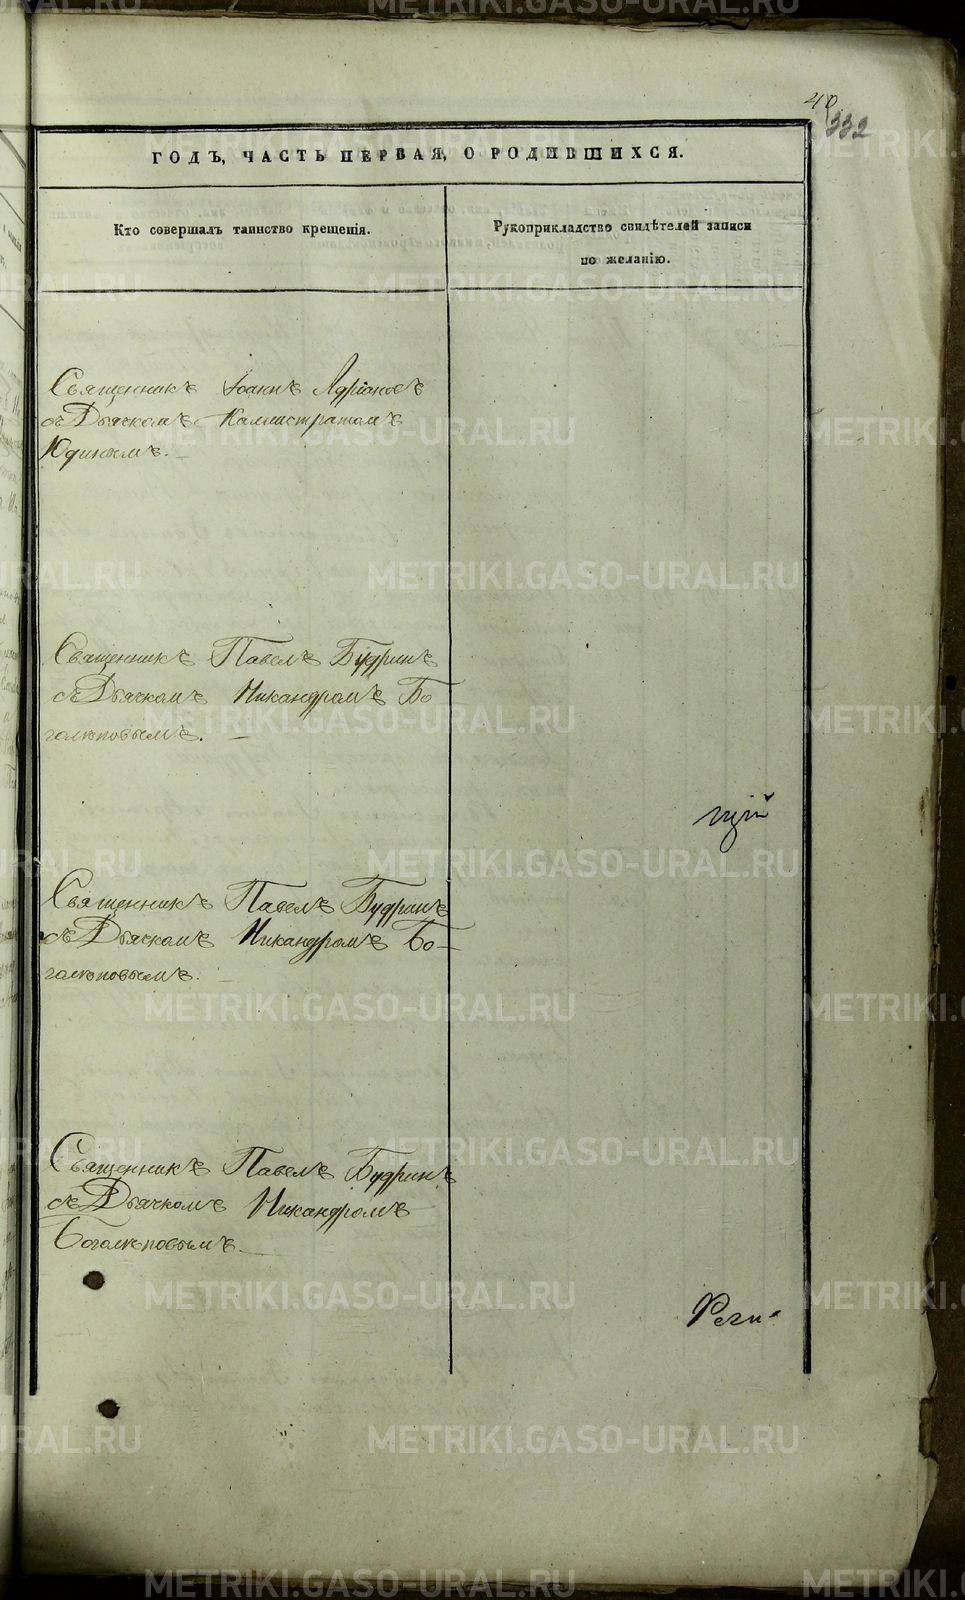 40
332
ГОДЪ, ЧАСТЬ ПЕРВАЯ, О РОДИВШИХСЯ.
Кто совершалъ таинство крещенія.
Рукоприкладство свидѣтелей записи
по желанію.
Священникъ Іоаннъ Адріановъ
съ Дьячкомъ Каллистратомъ
Юдинымъ.
Священникъ Павелъ Будринъ
съ Дьячкомъ Никандромъ Бо
голѣповымъ.
щій
Священникъ Павелъ Будринъ
съ Дьячкомъ Никандромъ Бо-
голѣповымъ.
Священникъ Павелъ Будринъ
съ Дьячкомъ Никандромъ
Боголѣповымъ.
METRIKI.GASO-URAL.RU